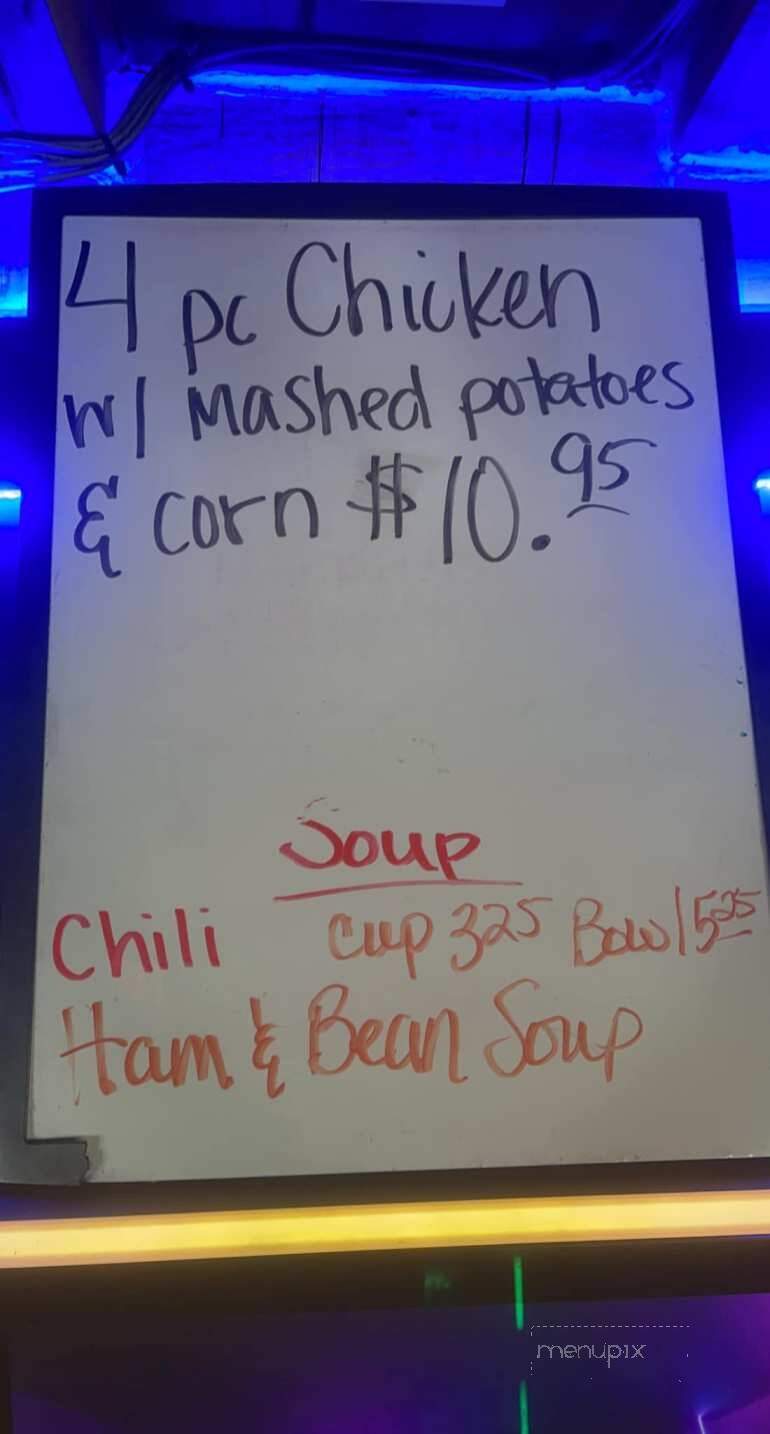 4 pc Chicken
w/ Mashed potatoes
& corn $10.95
Soup
Chili cup 325 Bowl 525
Ham & Bean Soup
menupix